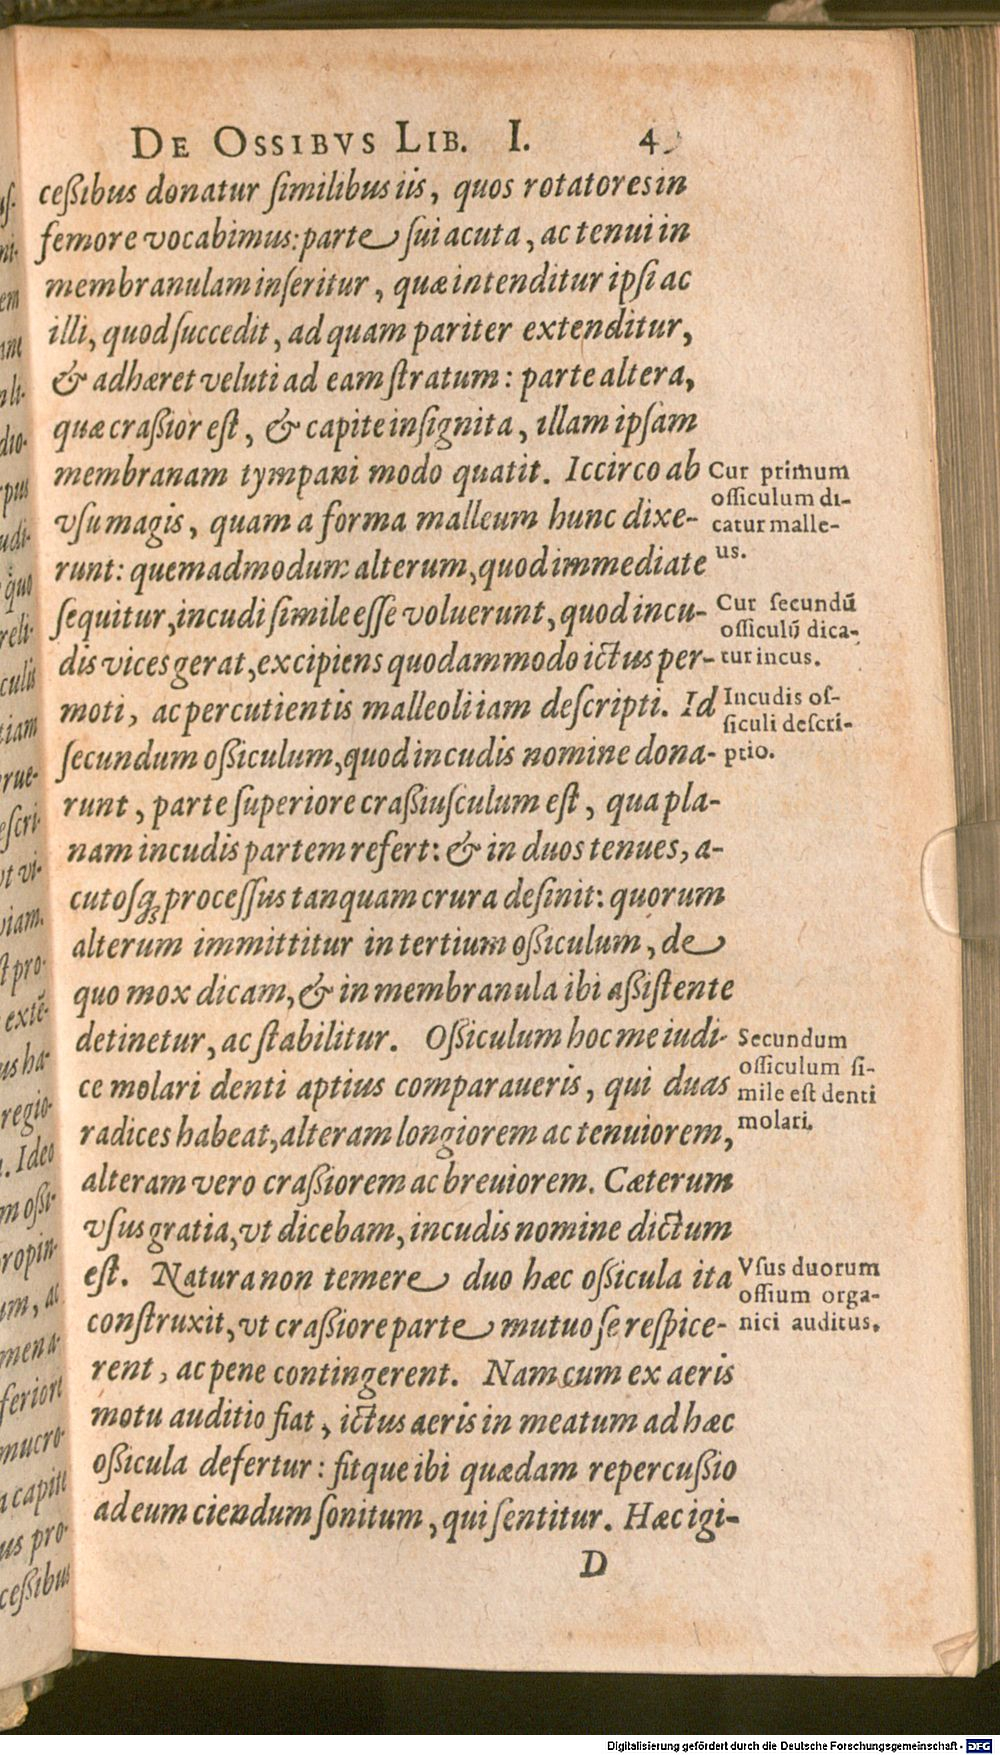 DE OSSIBVS LIB. I. 4
ceßibus donatur ſimilibus iis, quos rotatores in
femore vocabimus: parte ſui acuta, ac tenui in
membranulam inſeritur, quæ intenditur ipſi ac
illi, quod ſuccedit, ad quam pariter extenditur,
& adhæret veluti ad eam ſtratum: parte altera,
quæ craßior eſt, & capite inſignita, illam ipſam
membranam tympani modo quatit. Iccirco ab
vſu magis, quam a forma malleum hunc dixe-
runt: quemadmodum alterum, quod immediate
ſequitur, incudi ſimile eſſe voluerunt, quod incu-
dis vices gerat, excipiens quodammodo ictus per-
moti, ac percutientis malleoli iam deſcripti. Id
ſecundum oßiculum, quod incudis nomine dona-
runt, parte ſuperiore craßiuſculum eſt, qua pla-
nam incudis partem refert: & in duos tenues, a-
cutoſq; proceſſus tanquam crura deſinit: quorum
alterum immittitur in tertium oßiculum, de
quo mox dicam, & in membranula ibi aßiſtente
detinetur, ac ſtabilitur. Oßiculum hoc me iudi-
ce molari denti aptius comparaueris, qui duas
radices habeat, alteram longiorem ac tenuiorem,
alteram vero craßiorem ac breuiorem. Cæterum
vſus gratia, vt dicebam, incudis nomine dictum
eſt. Natura non temere duo hæc oßicula ita
conſtruxit, vt craßiore parte mutuo ſe reſpice-
rent, ac pene contingerent. Nam cum ex aeris
motu auditio fiat, ictus aeris in meatum ad hæc
oßicula defertur: fitque ibi quædam repercußio
ad eum ciendum ſonitum, qui ſentitur. Hæc igi-
D
Cur primum
oſſiculum di-
catur malle-
us.
Cur ſecundū
oſſiculū dica-
tur incus.
Incudis oſ-
ſiculi deſcri-
ptio.
Secundum
oſſiculum ſi-
mile eſt denti
molari.
Vſus duorum
oſſium orga-
nici auditus.
Digitalisierung gefördert durch die Deutsche Forschungsgemeinschaft - DFG